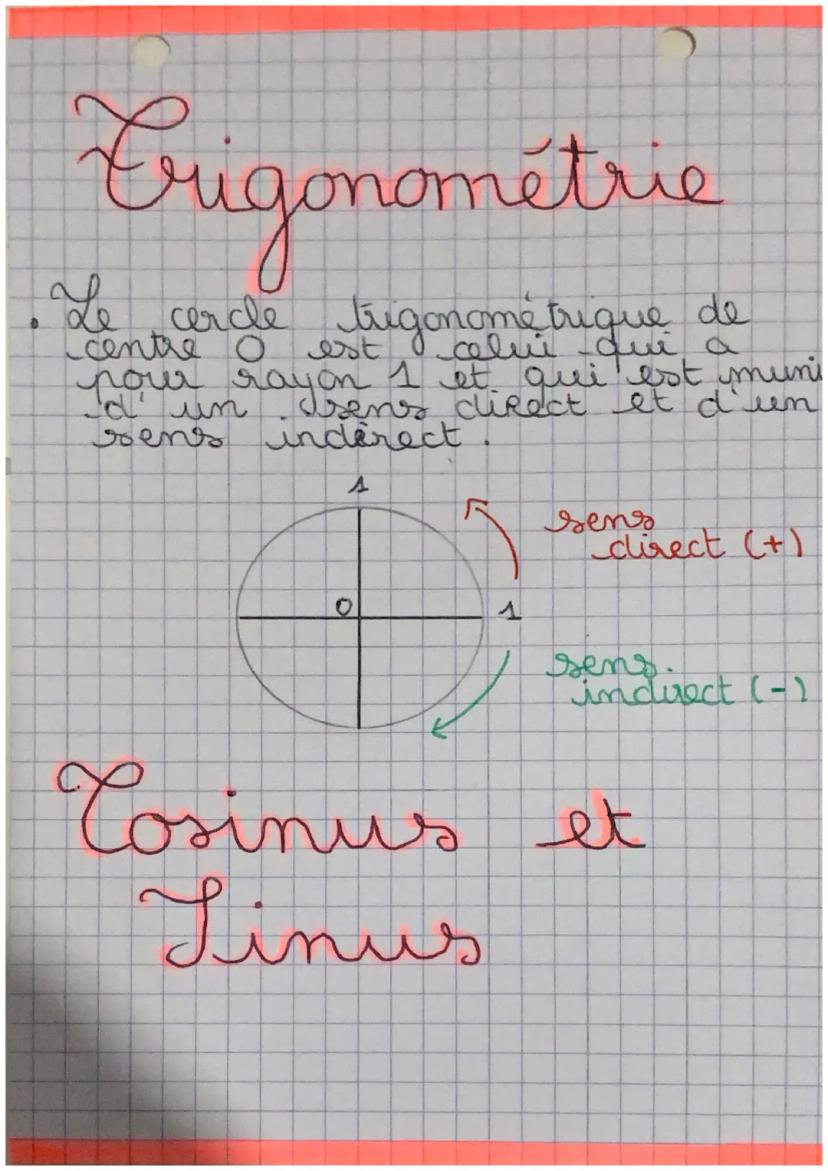 Trigonométrie
. Le cercle trigonométrique de
centre O est celui qui a
pour rayon 1 et qui est muni
d'un sens direct et d'un
sens indirect.
1
sens
direct (+)
O
1
sens
indirect (-)
Cosinus et
Sinus